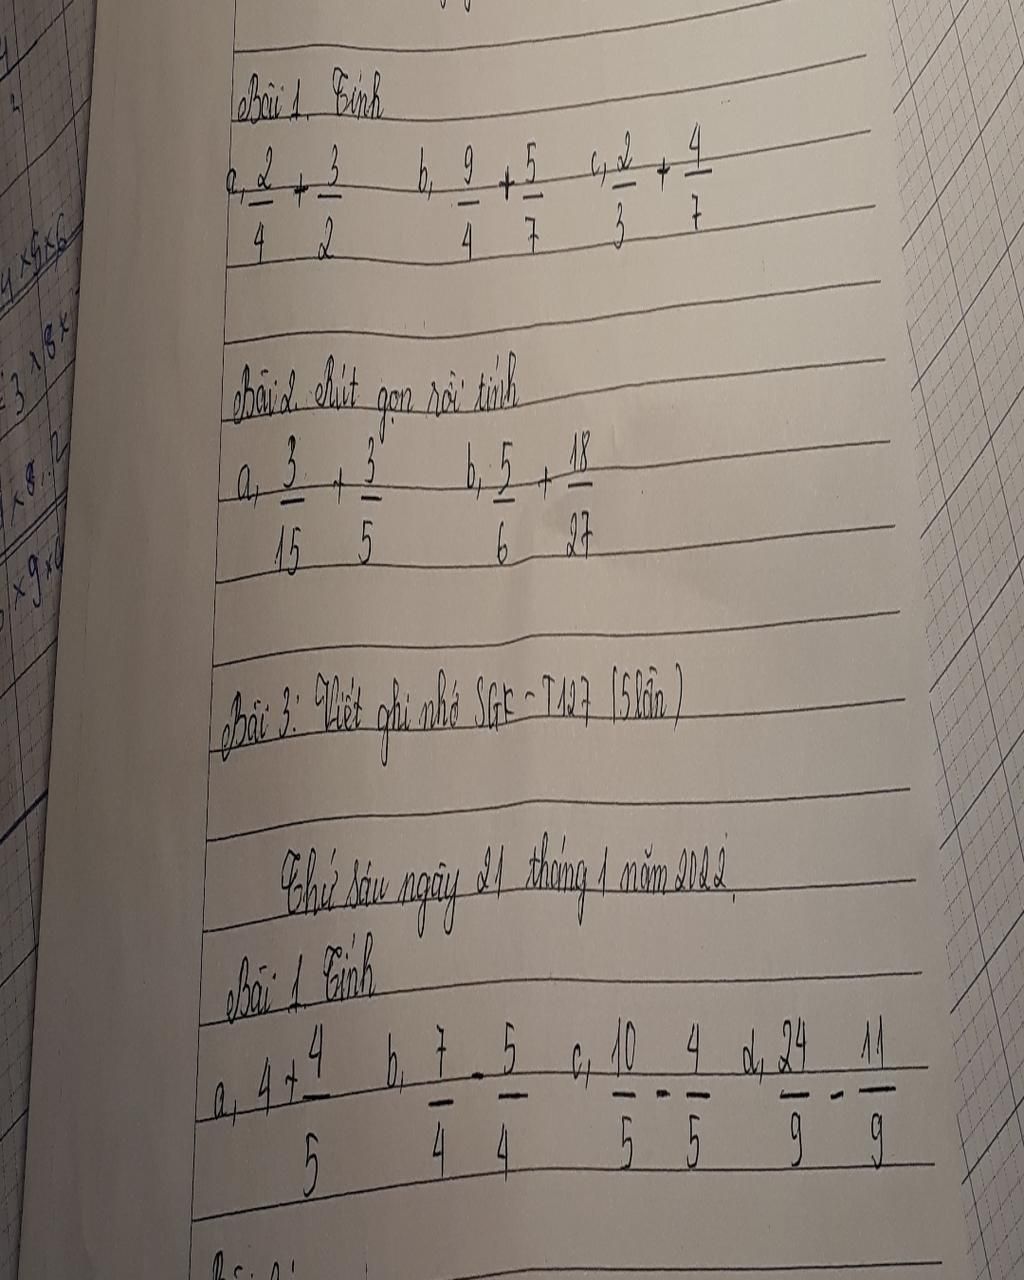 Bài 1. Tính
a, 2/4 + 3/2 b, 9/4 + 5/7 c, 2/3 + 4/7
Bài 2. Rút gọn rồi tính
a, 3/15 + 3/5 b, 5/6 + 18/27
Bài 3: Viết ghi nhớ SGK - T127 (5 lần)
Thứ sáu ngày 21 tháng 1 năm 2022.
Bài 1. Tính
a, 4 + 4/5 b, 7/4 - 5/4 c, 10/5 - 4/5 d, 24/9 - 11/9